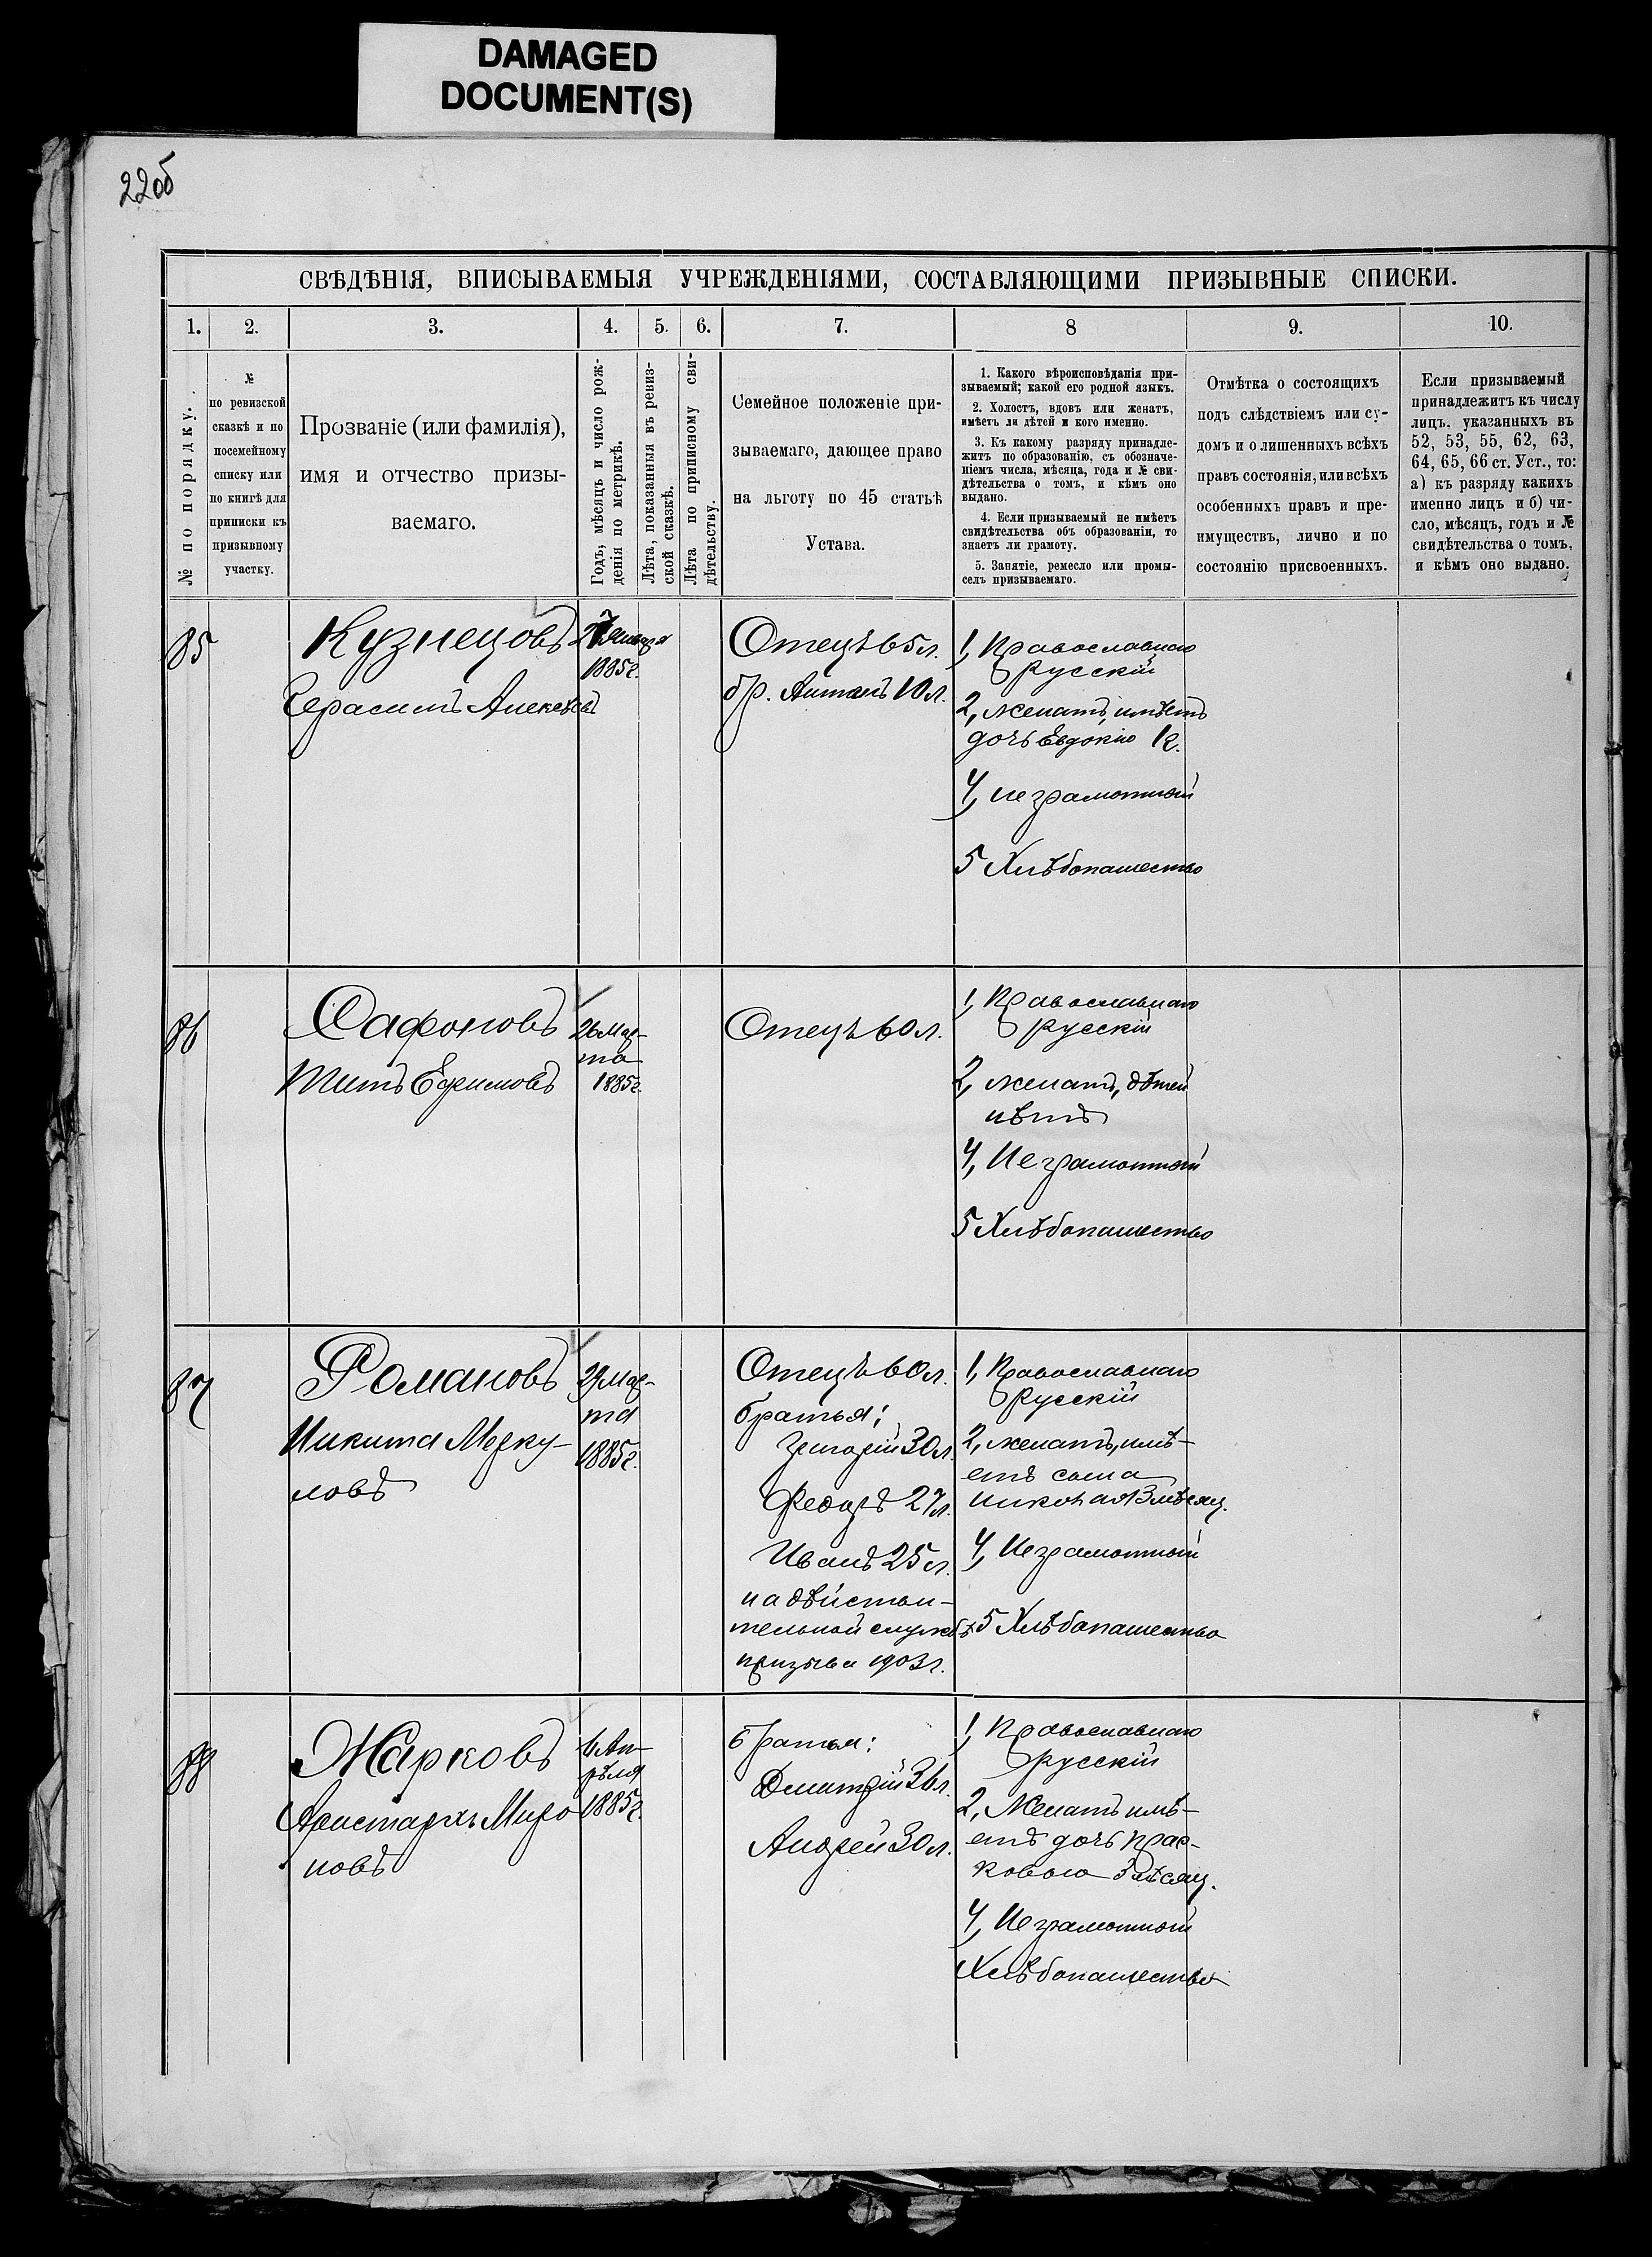 DAMAGED
DOCUMENT(S)
22об
СВѢДѢНІЯ, ВПИСЫВАЕМЫЯ УЧРЕЖДЕНІЯМИ, СОСТАВЛЯЮЩИМИ ПРИЗЫВНЫЕ СПИСКИ.
1.
2.
3.
4.
5.
6.
7.
8
9.
10.
№ по порядку.
№
по ревизской
сказкѣ и по
посемейному
списку или
по книгѣ для
приписки къ
призывному
участку.
Прозваніе (или фамилія),
имя и отчество призы-
ваемаго.
Годъ, мѣсяцъ и число рож-
денія по метрикѣ.
Лѣта, показанныя въ ревиз-
ской сказкѣ.
Лѣта по приписному сви-
дѣтельству.
Семейное положеніе при-
зываемаго, дающее право
на льготу по 45 статьѣ
Устава.
1. Какого вѣроисповѣданія при-
зываемый; какой его родной языкъ.
2. Холостъ, вдовъ или женатъ,
имѣетъ ли дѣтей и кого именно.
3. Къ какому разряду принадле-
житъ по образованію, съ обозначе-
ніемъ числа, мѣсяца, года и № сви-
дѣтельства о томъ, и кѣмъ оно
выдано.
4. Если призываемый не имѣетъ
свидѣтельства объ образованіи, то
знаетъ ли грамоту.
5. Занятіе, ремесло или промы-
селъ призываемаго.
Отмѣтка о состоящихъ
подъ слѣдствіемъ или су-
домъ и о лишенныхъ всѣхъ
правъ состоянія, или всѣхъ
особенныхъ правъ и пре-
имуществъ, лично и по
состоянію присвоенныхъ.
Если призываемый
принадлежитъ къ числу
лицъ, указанныхъ въ
52, 53, 55, 62, 63,
64, 65, 66 ст. Уст., то:
а) къ разряду какихъ
именно лицъ и б) чи-
сло, мѣсяцъ, годъ и №
свидѣтельства о томъ,
и кѣмъ оно выдано.
85
Кузнецовъ
Герасимъ Алексѣевъ
Января
1885г.
Отецъ 65л.
бр. Антонъ 10л.
1, Православнаго
Русскій
2, женатъ, имѣетъ
дочь Евдокію 1г.
4, неграмотный
5 Хлѣбопашество
86
Сафоновъ
Титъ Ефимовъ
26 Мар-
та
1885г.
Отецъ 60л.
1, Православнаго
Русскій
2, женатъ, дѣтей
нѣтъ
4, Неграмотный
5 Хлѣбопашество
87
Романовъ
Никита Мерку-
ловъ
29 Мар-
та
1885г.
Отецъ 60л.
братья:
Григорій 30л.
Федоръ 27л.
Иванъ 25л.
на дѣйстви-
тельной службѣ
призыва 1903г.
1, Православнаго
Русскій
2, женатъ, имѣ-
етъ сына
Николая 3 мѣсяц.
4, Неграмотный
5 Хлѣбопашество
88
Жарковъ
Аристархъ Миро
новъ
Ап-
рѣля
1885г.
братья:
Дмитрій 36л.
Андрей 30л.
1, Православнаго
Русскій
2, Женатъ имѣ-
етъ дочь Прас-
ковью мѣсяц.
4, Неграмотный
Хлѣбопашество